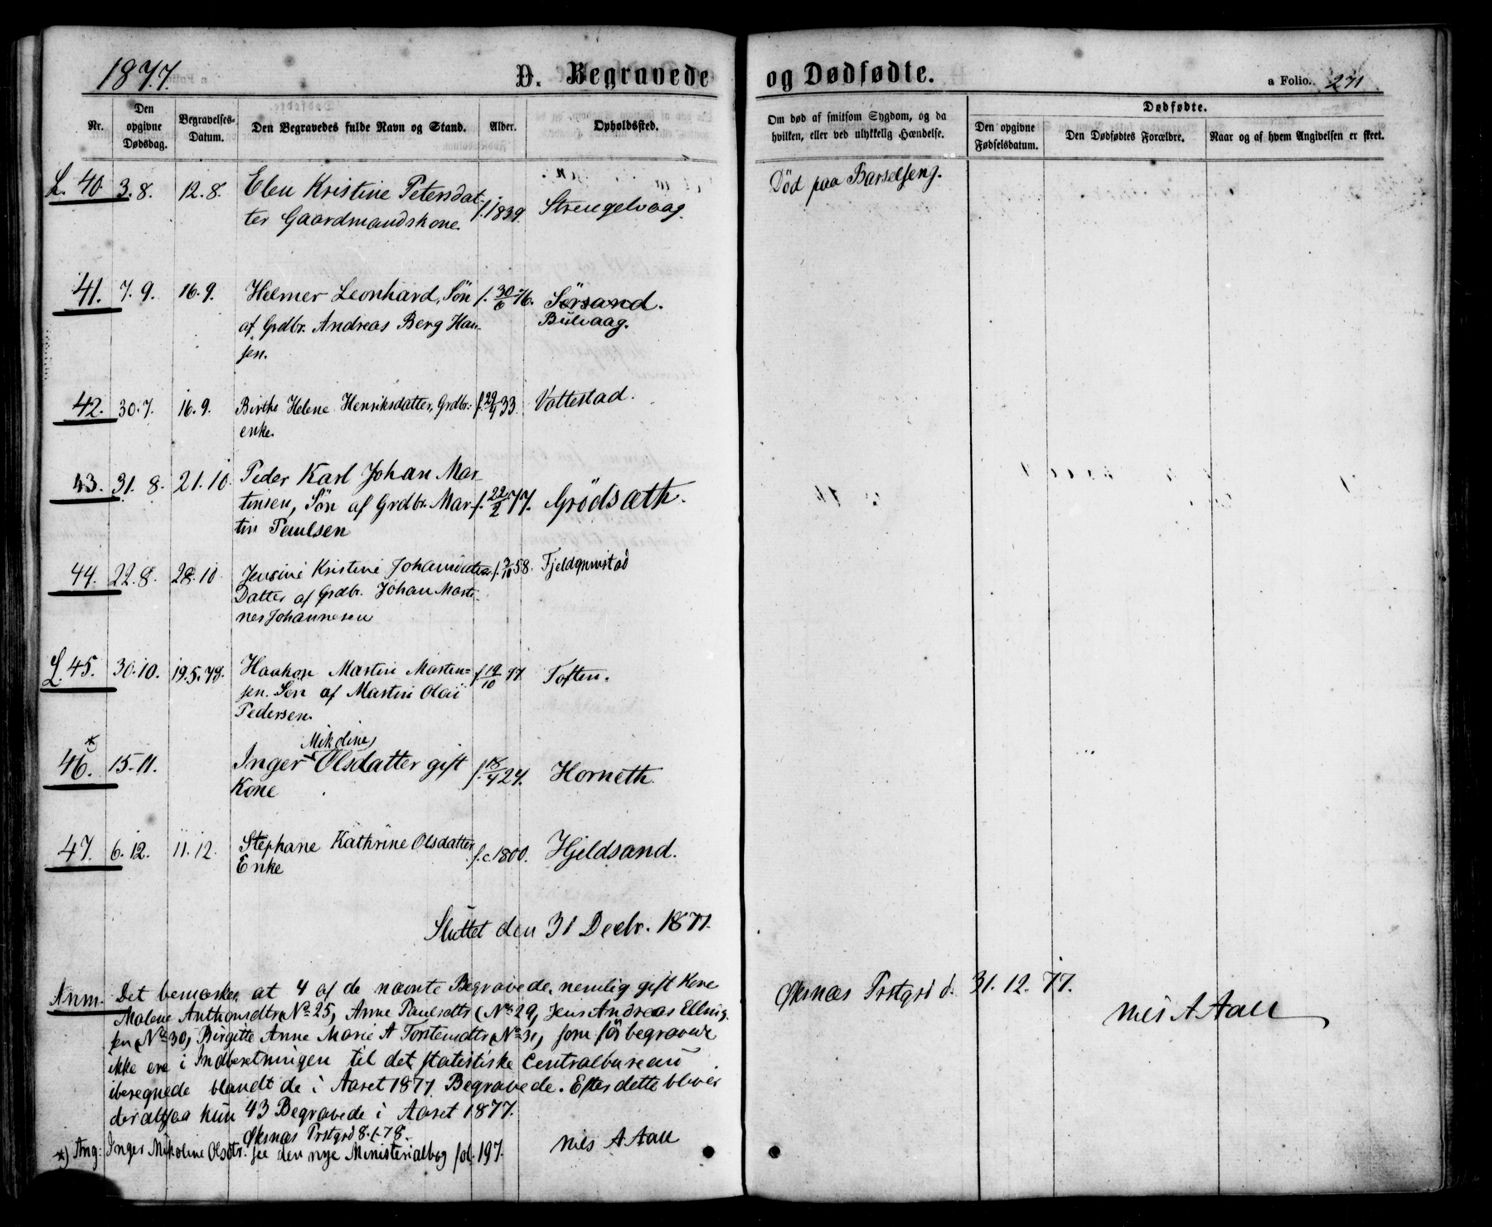 1877.
D. Begravede og Dødfødte.
a Folio. 271
Nr.
Den opgivne Dødsdag.
Begravelses-Datum.
Den Begravedes fulde Navn og Stand.
Alder.
Opholdssted.
Om død af smitsom Sygdom, og da hvilken, eller ved ulykkelig Hændelse.
Dødfødte.
Den opgivne Fødselsdatum.
Den Dødfødtes Forældre.
Naar og af hvem Angivelsen er skeet.
L. 40 3.8. 12.8. Elen Kristine Petersdat- f. 1839. Strengelvaag. Død paa Barselseng.
ter Gaardmandskone.
41. 7.9. 16.9. Helmer Leonhard, Søn f. 30/6 76. Sørsand.
af Grdbr. Andreas Berg Han- Bulvaag.
sen.
42. 30.7. 16.9. Birthe Helene Henriksdatter, Grdbr. 33. Vottestad.
enke.
43. 31.8. 21.10 Peder Karl Johan Mar-
tinsen, Søn af Grdbr. Mar- f. 22/2 77. Grødsæth.
tin Paulsen
44. 22.8. 28.10 Jensine Kristine Johansdatter 58.
Datter af Grdbr. Johan Marti-
nes Johannesen
L. 45. 30.10. 19.5.78. Haakon Martin Marten- f. 19/10 77 Toften.
sen. Søn af Martin Olai
Pedersen.
* Mikoline
46. 15.11. Inger Olsdatter gift 24. Horneth.
Kone
47. 6.12. 11.12. Stephane Kathrine Olsdatter f. c. 1800. Hjeldsand.
Enke
Sluttet den 31 Decbr. 1877.
Øksnæs Prstgrd d. 31.12.77.
Nils A Aall
Anm. Det bemærkes, at 4 af de nævnte Begravede, nemlig gift Kone
Malene Anthonsdtr (No 25), Anne Paulsdtr (No 29, Jens Andreas Elling-
sen (No 30), Birgitte Anne Marie A Torstensdtr (No 31), som før begravede
ikke ere i Indberetningen til det statistiske Centralbureau
iberegnede blandt de i Aaret 1877 Begravede. Efter dette bliver
der altsaa kun 43 Begravede i Aaret 1877.
Øksnæs Prstgrd 8.1.78. Nils A Aall
*) Ang. Inger Mikoline Olsdtr. see den nye Ministerialbog fol. 197.